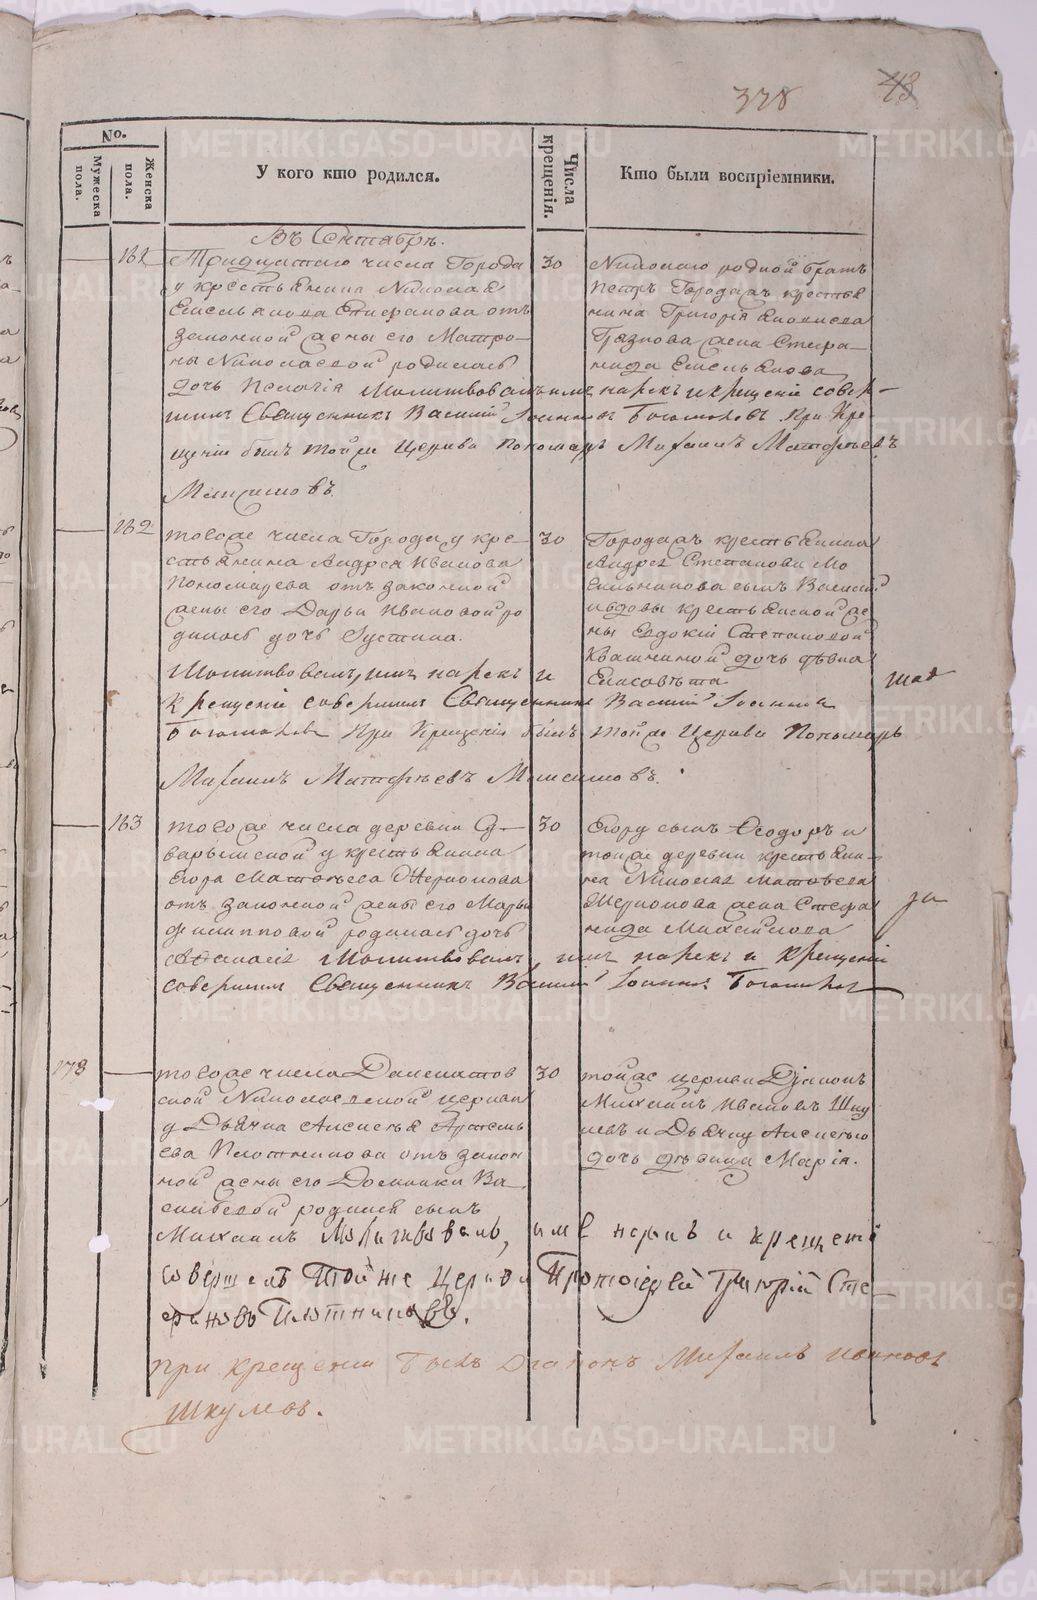 328
43
№.
Мужеска пола.
Женска пола.
У кого кто родился.
Числа крещенія.
Кто были воспріемники.
Въ Сентябрѣ.
161
Тридцатаго числа Города
у крестьянина Николая
Емельянова Епифанова отъ
законной жены его Матро-
ны Николаевой родилась
дочь Пелагія Молитвовалъ имя нарекъ и крещеніе совер-
шилъ Священникъ Василій Іоанновъ Богомоловъ. При Кре-
щеніи былъ той же Церкви Пономарь Михаилъ Матфѣевъ
Максимовъ.
30
Николаю родной братъ
Петръ Городскъ крестья
нина Григорія
Грязнова жена Стефа-
нида Емельянова
162
того же числа Города у кре-
стьянина Андрея Иванова
Пономарева отъ законной
жены его Дарьи Ивановой ро
дилась дочь Іустина.
Молитвовалъ, имя нарекъ и
крещеніе совершилъ Священникъ Василій Іоанновъ
Богомоловъ При Крещеніи былъ той же Церкви Пономарь
Михаилъ Матфѣевъ Максимовъ.
30
Городскъ крестьянина
Андрея Степанова
сынъ Василій
и вдовы крестьянской же
ны Евдокіи Степановой
Квашниной дочь дѣвка
Елисавѣта
163
того же числа деревни
у крестьянина
Егора Матвѣева
отъ законной жены его Марьи
Филипповой родилась дочь
Аѳанасія Молитвовалъ, имя нарекъ и Крещеніе
совершилъ Священникъ Василій Іоанновъ Богомоловъ
30
Егору сынъ Ѳеодоръ и
той же деревни крестьяни-
на Николая Матвѣева
жена Стефа
нида Михайлова
178
того же числа Далматов
ской Николаевской церкви
у Дьячка Алексѣя Артемь
ева Плотникова отъ закон
ной жены его Домники Ва
сильевой родился сынъ
Михаилъ Молитвовалъ, имя нарекъ и крещеніе
совершилъ Той же Церкви Протоіерей Григорій Сте-
фановъ Плотниковъ.
При крещеніи былъ Діаконъ Михаилъ Ивановъ
Шкулевъ.
30
той же церкви Діаконъ
Михаилъ Ивановъ Шку
левъ и Дьячку Алексѣю
дочь дѣвица Марія.
METRIKI.GASO-URAL.RU